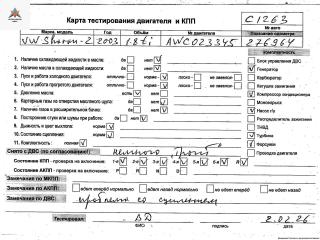 Карта тестирования двигателя и КПП
C1263
№ авто
Марка, модель
Год
Объём
№ двигателя
Показание одометра
VW Sharan-2
2003
1.8 ti
AWC023345
276964
1. Наличие охлаждающей жидкости и масла: да нет
2. Наличие масла в охлаждающей жидкости: да нет
3. Пуск и работа холодного двигателя: отлично- норма- плохо- не завелся-
4. Пуск и работа прогретого двигателя: отлично- норма- плохо- не завелся-
5. Давление масла: есть нет
6. Картерные газы из отверстия масляного щупа: да норма нет
7. Наличие газов в расширительном бачке: да нет
8. Посторонние стуки или шумы при работе: да нет
9. Дымность и цвет выхлопа: норма
10. Состояние сцепления: норма
11. Комплектность: полный
комплектность
Блок управления ДВС
Генератор
Карбюратор
Катушка зажигания
Компрессор кондиционера
Моновпрыск
Насос г/у
Распределитель зажигания
ТНВД
Турбина
Форсунки
Проводка двигателя
Снято с ДВС (по согласованию): немного троит
Состояние КПП - проверка на включение: 1-я 2-я 3-я 4-я 5-я R
Состояние АКПП - проверка на включение: P R N D
Замечания по МКПП: едет вперёд нормально едет назад нормально не едет вперёд не едет назад
Замечания по АКПП:
Замечания по ДВС: проблема со сцеплением
Тестировал:
2.02.26
ФИО
подпись
дата